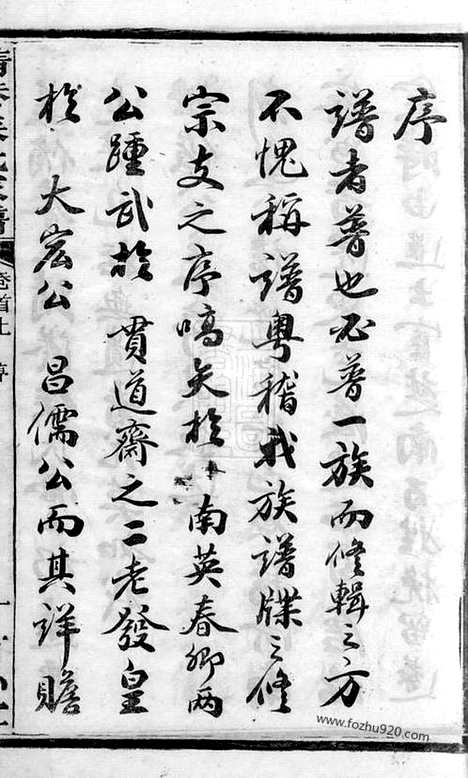 序
譜者普也必普一族而修輯之方
不愧稱譜粵稽我族譜牒之修
宗支之序嚆矢於 南英春卿兩
公踵武於 貫道齋之二老發皇
於 大宏公 昌儒公而其詳贍
卷首上
www.fozhu920.com